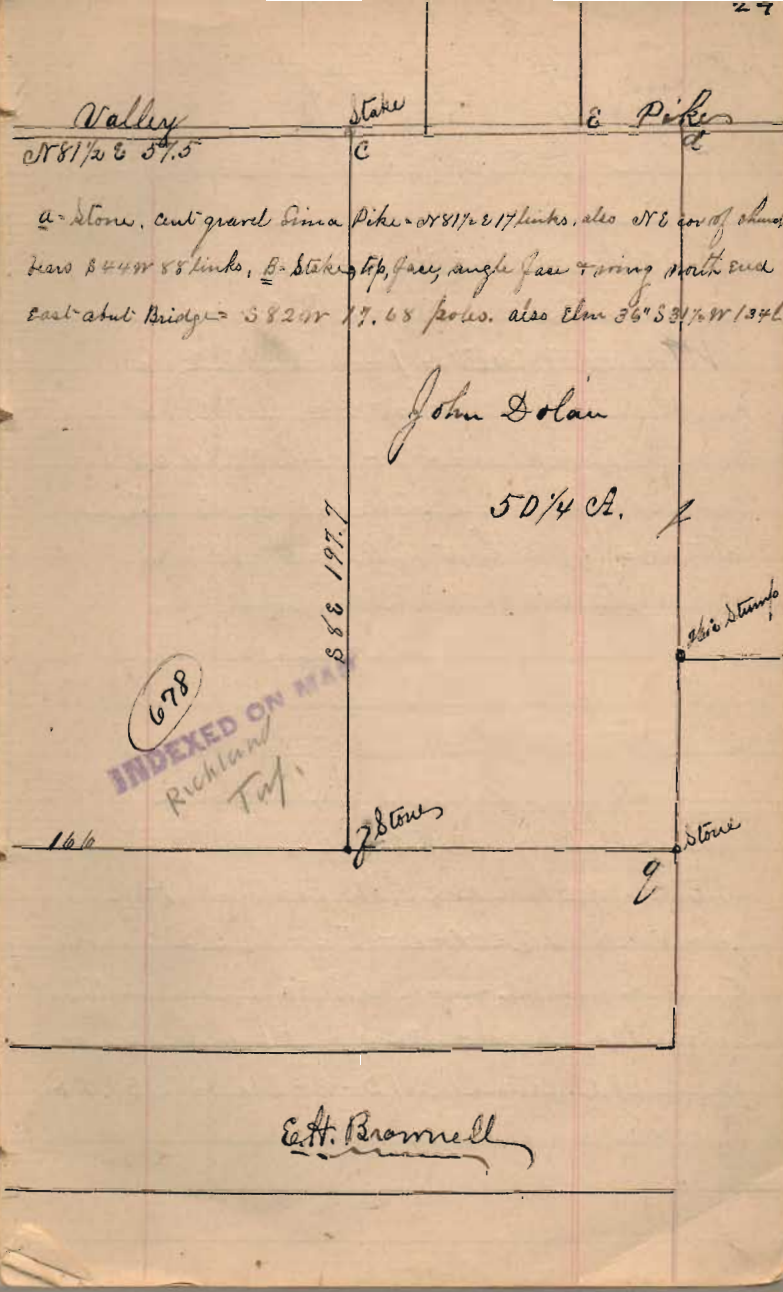 Stake
Valley E Pike
N 81 1/2 E 57.5 C d
a = Stone, cent gravel Pike = N 81 1/2 E 17 links. also NE cor of
bears S 44 W 88 links, B = Stake, tip, face, angle face & wing north end
East abut Bridge = S 82 W 17.68 poles. also Elm 36" S 31 1/2 W 134
John Dolan
50 1/4 A.
S 8 E 197.7
Stump
678
INDEXED ON MAP
Richland
Twp.
166
Stone
Stone
g
E. H. Brownell